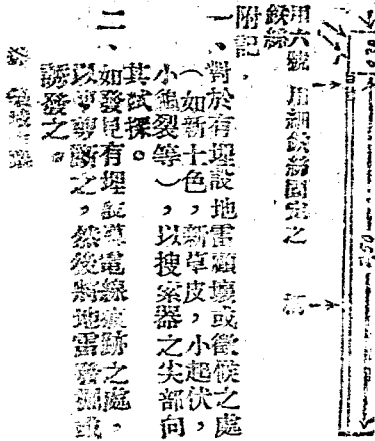 用六號
鉸絲
用細鉸絲固定之
柄
附記
一、對於有埋設地雷顧壞或徵候之處
（如新土色，新草皮，小起伏，
小龜裂等），以搜索器之尖部向
其試探。
二、如發見有埋設草電線痕跡之處，
以剪剪斷之，然後將地雷發掘或
誘發之。